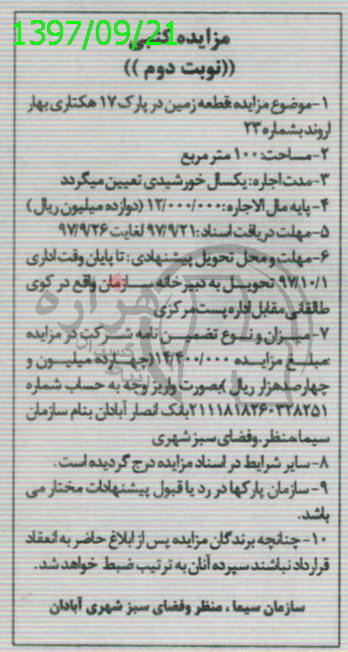 1397/09/21
مزایده کتبی
((نوبت دوم))
۱-موضوع مزایده:قطعه زمین در پارک ۱۷ هکتاری بهار
اروند بشماره ۲۳
۲-مساحت: ۱۰۰ متر مربع
۳-مدت اجاره: یکسال خورشیدی تعیین میگردد
۴-پایه مال الاجاره: ۱۲/۰۰۰/۰۰۰ (دوازده میلیون ریال)
۵-مهلت دریافت اسناد: ۹۷/۹/۲۱ لغایت ۹۷/۹/۲۶
۶-مهلت و محل تحویل پیشنهادی: تا پایان وقت اداری
۹۷/۱۰/۱ تحویل به دبیرخانه سازمان واقع در کوی
طالقانی مقابل اداره پست مرکزی
۷-میزان و نوع تضمین نامه شرکت در مزایده
:مبلغ مزایده ۱۴/۴۰۰/۰۰۰(چهارده میلیون و
چهارصدهزار ریال)بصورت واریز وجه به حساب شماره
۲۱۱۱۸۱۸۲۶۰۳۲۸۲۵۱بانک انصار آبادان بنام سازمان
سیما،منظر،وفضای سبز شهری
۸-سایر شرایط در اسناد مزایده درج گردیده است.
۹-سازمان پارکها در رد یا قبول پیشنهادات مختار می
باشد.
۱۰-چنانچه برندگان مزایده پس از ابلاغ حاضر به انعقاد
قرارداد نباشند سپرده آنان به ترتیب ضبط خواهد شد.
سازمان سیما، منظر وفضای سبز شهری آبادان